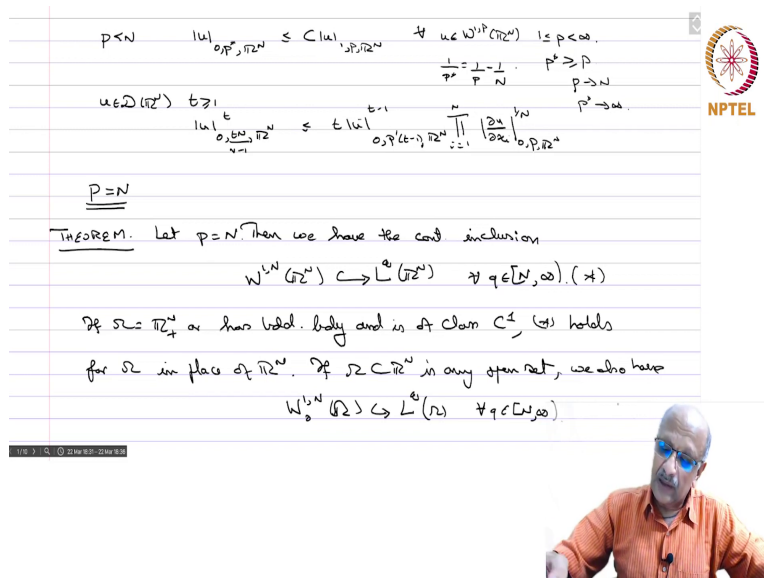 p<N |u|_{0,p*,ℝ^N} ≤ C|u|_{1,p,ℝ^N} ∀ u∈W^{1,p}(ℝ^N) 1≤p<∞.
1/p* = 1/p - 1/N. p*≥p
p→N
p*→∞.
NPTEL
u∈D(ℝ^N) t≥1
|u|^t_{0,tN/(N-1),ℝ^N} ≤ t|u|^{t-1}_{0,p'(t-1),ℝ^N} ∏_{i=1}^N |∂u/∂x_i|^{1/N}_{0,p,ℝ^N}
P=N
THEOREM. Let p=N. Then we have the cont. inclusion
W^{1,N}(ℝ^N) ↪ L^q(ℝ^N) ∀ q∈[N,∞). (*)
If Ω=ℝ^N_+ or has bdd. bdy and is of class C^1, (*) holds
for Ω in place of ℝ^N. If Ω⊂ℝ^N is any open set, we also have
W_0^{1,N}(Ω) ↪ L^q(Ω) ∀ q∈[N,∞).
1/10 22 Mar 18:31 - 22 Mar 18:38